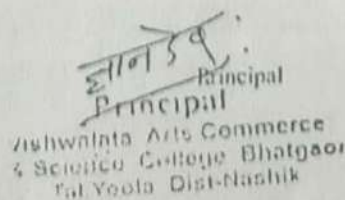 ज्ञानदेव :
Principal
Principal
Vishwalata Arts Commerce
& Science College Bhatgaon
Tal Yeola Dist-Nashik